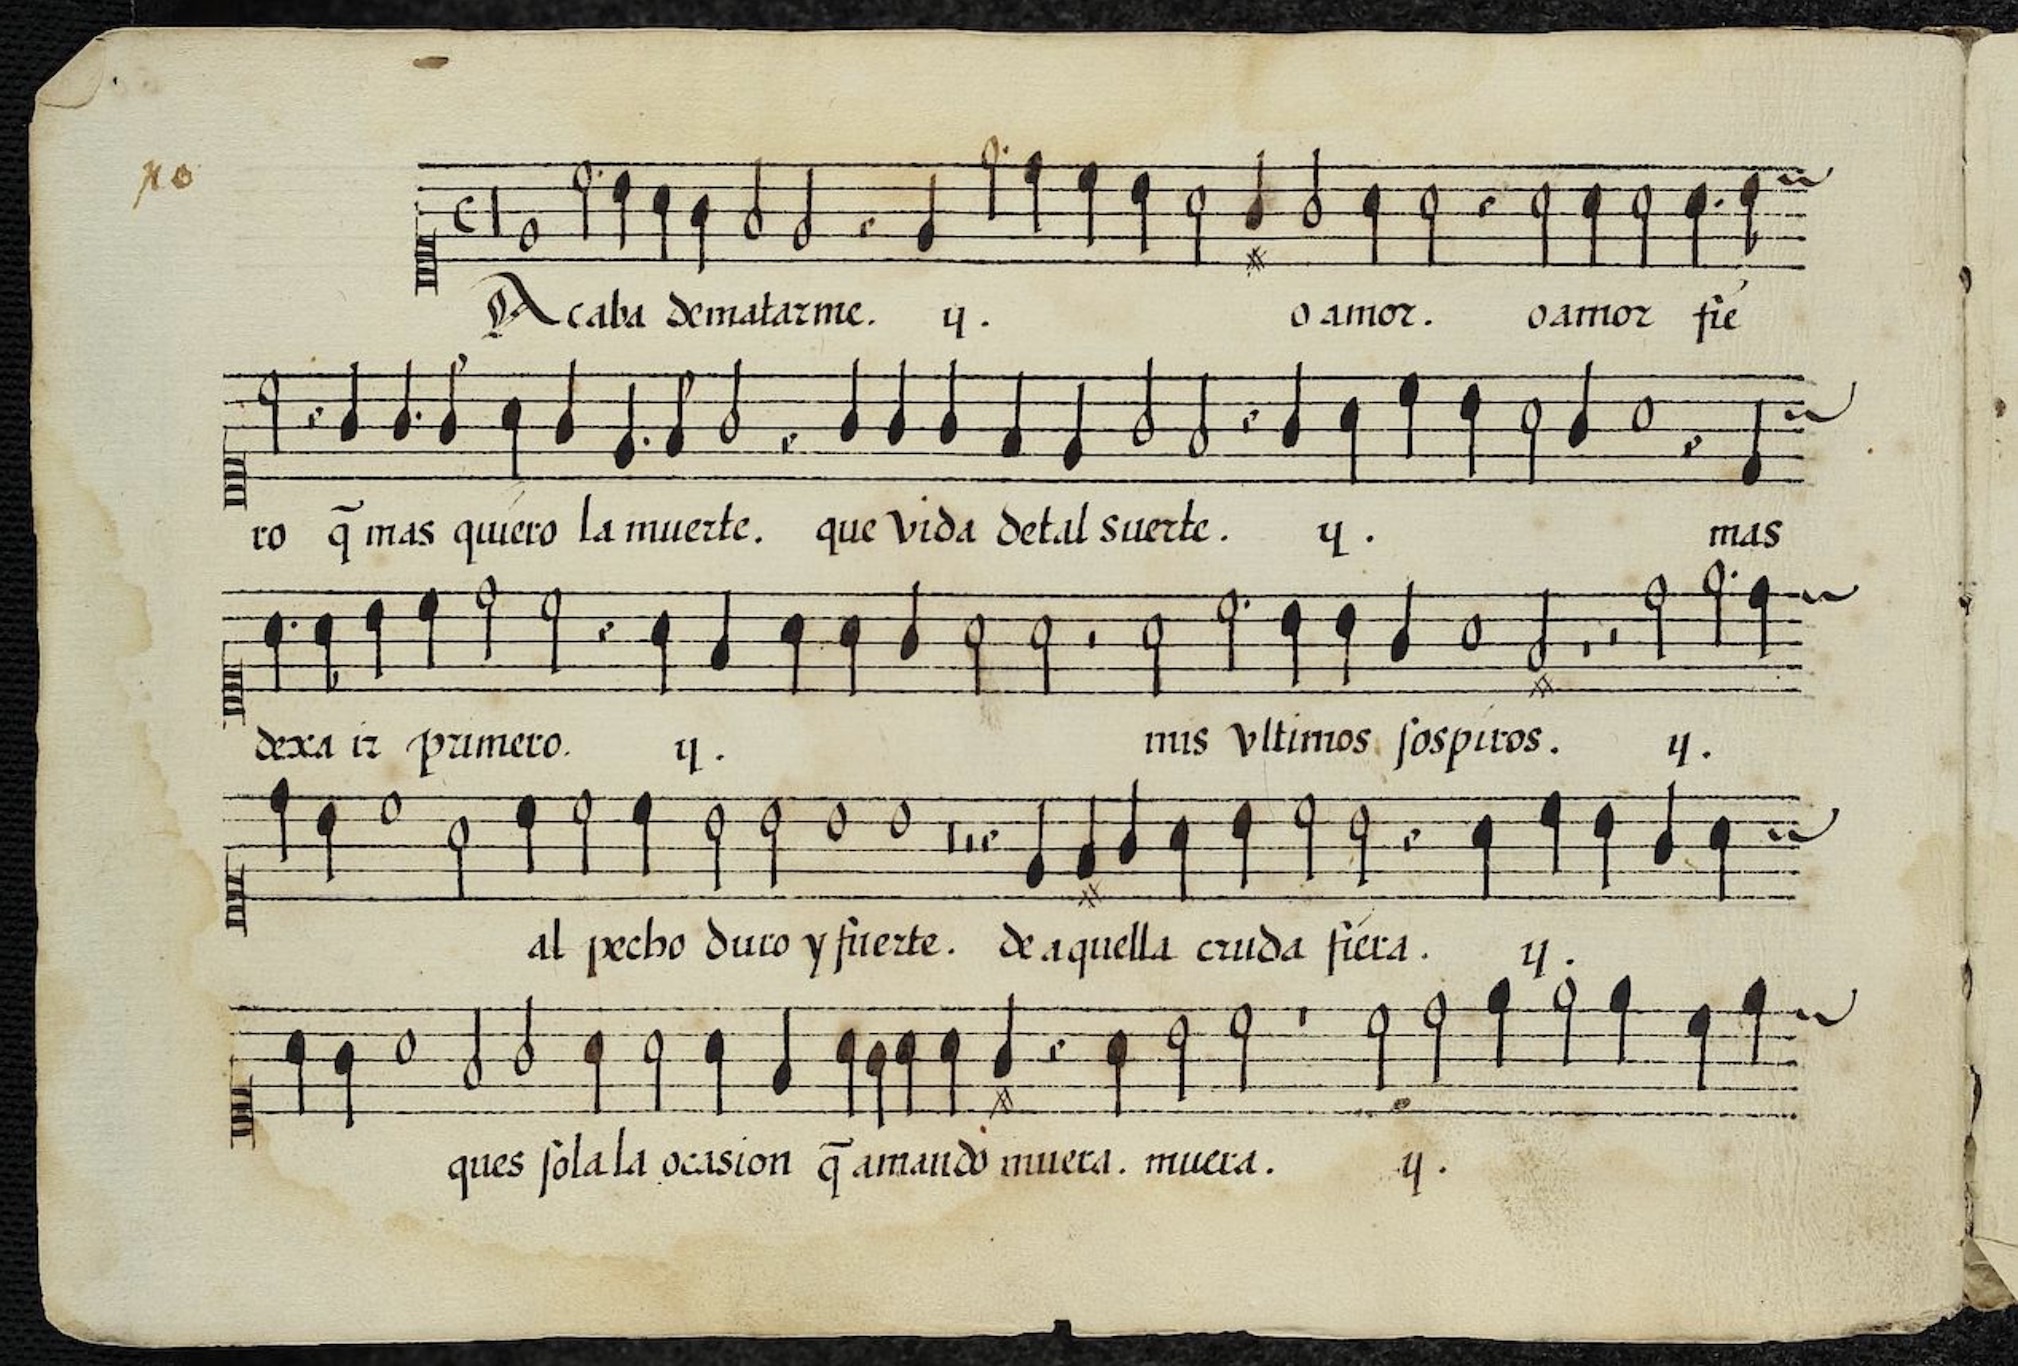 Acaba dematarme. ij. o amor. o amor fie
ro q̃ mas quiero la muerte. que vida detal suerte. ij. mas
dexa ir primero. ij. mis vltimos sospiros. ij.
al pecho duro y fuerte. de aquella cruda fiera. ij.
ques sola la ocasion q̃ amando muera. muera. ij.